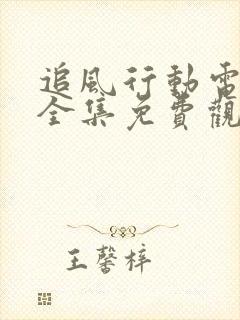 追风行動電
全集免費觀
王馨梓